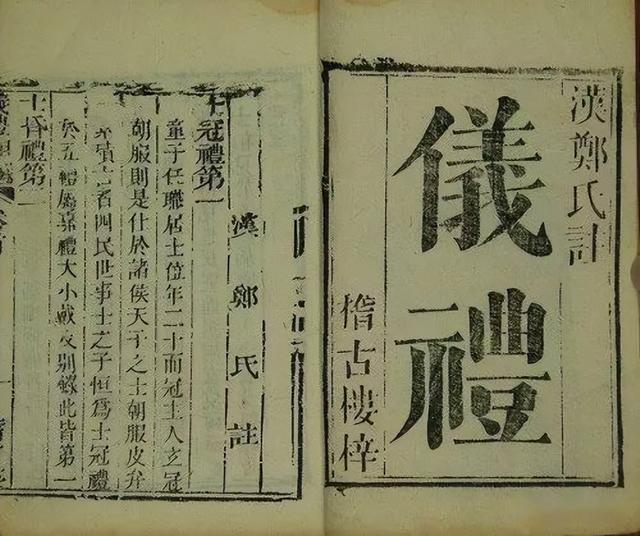 漢鄭氏註
儀禮
稽古樓梓
士冠禮第一
漢鄭氏註
童子任職居士位年二十而冠主人玄冠
朝服則是仕於諸侯天子之士朝服皮弁
素積古者四民世事士之子恒爲士冠禮
於五禮屬嘉禮大小戴及別錄此皆第一
士昏禮第二